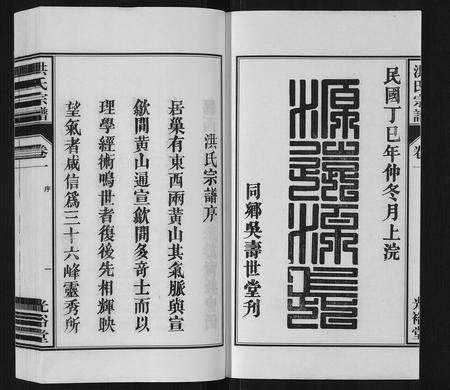 民國丁巳年仲冬月上浣
源遠流長
同鄉吳壽世堂刊
洪氏宗譜
卷一
光裕堂
洪氏宗譜序
居巢有東西兩黃山其氣脈與宣
歙間黃山通宣歙間多奇士而以
理學經術鳴世者復後先相輝映
望氣者咸信為三十六峰靈秀所
洪氏宗譜
卷一
序
一
光裕堂